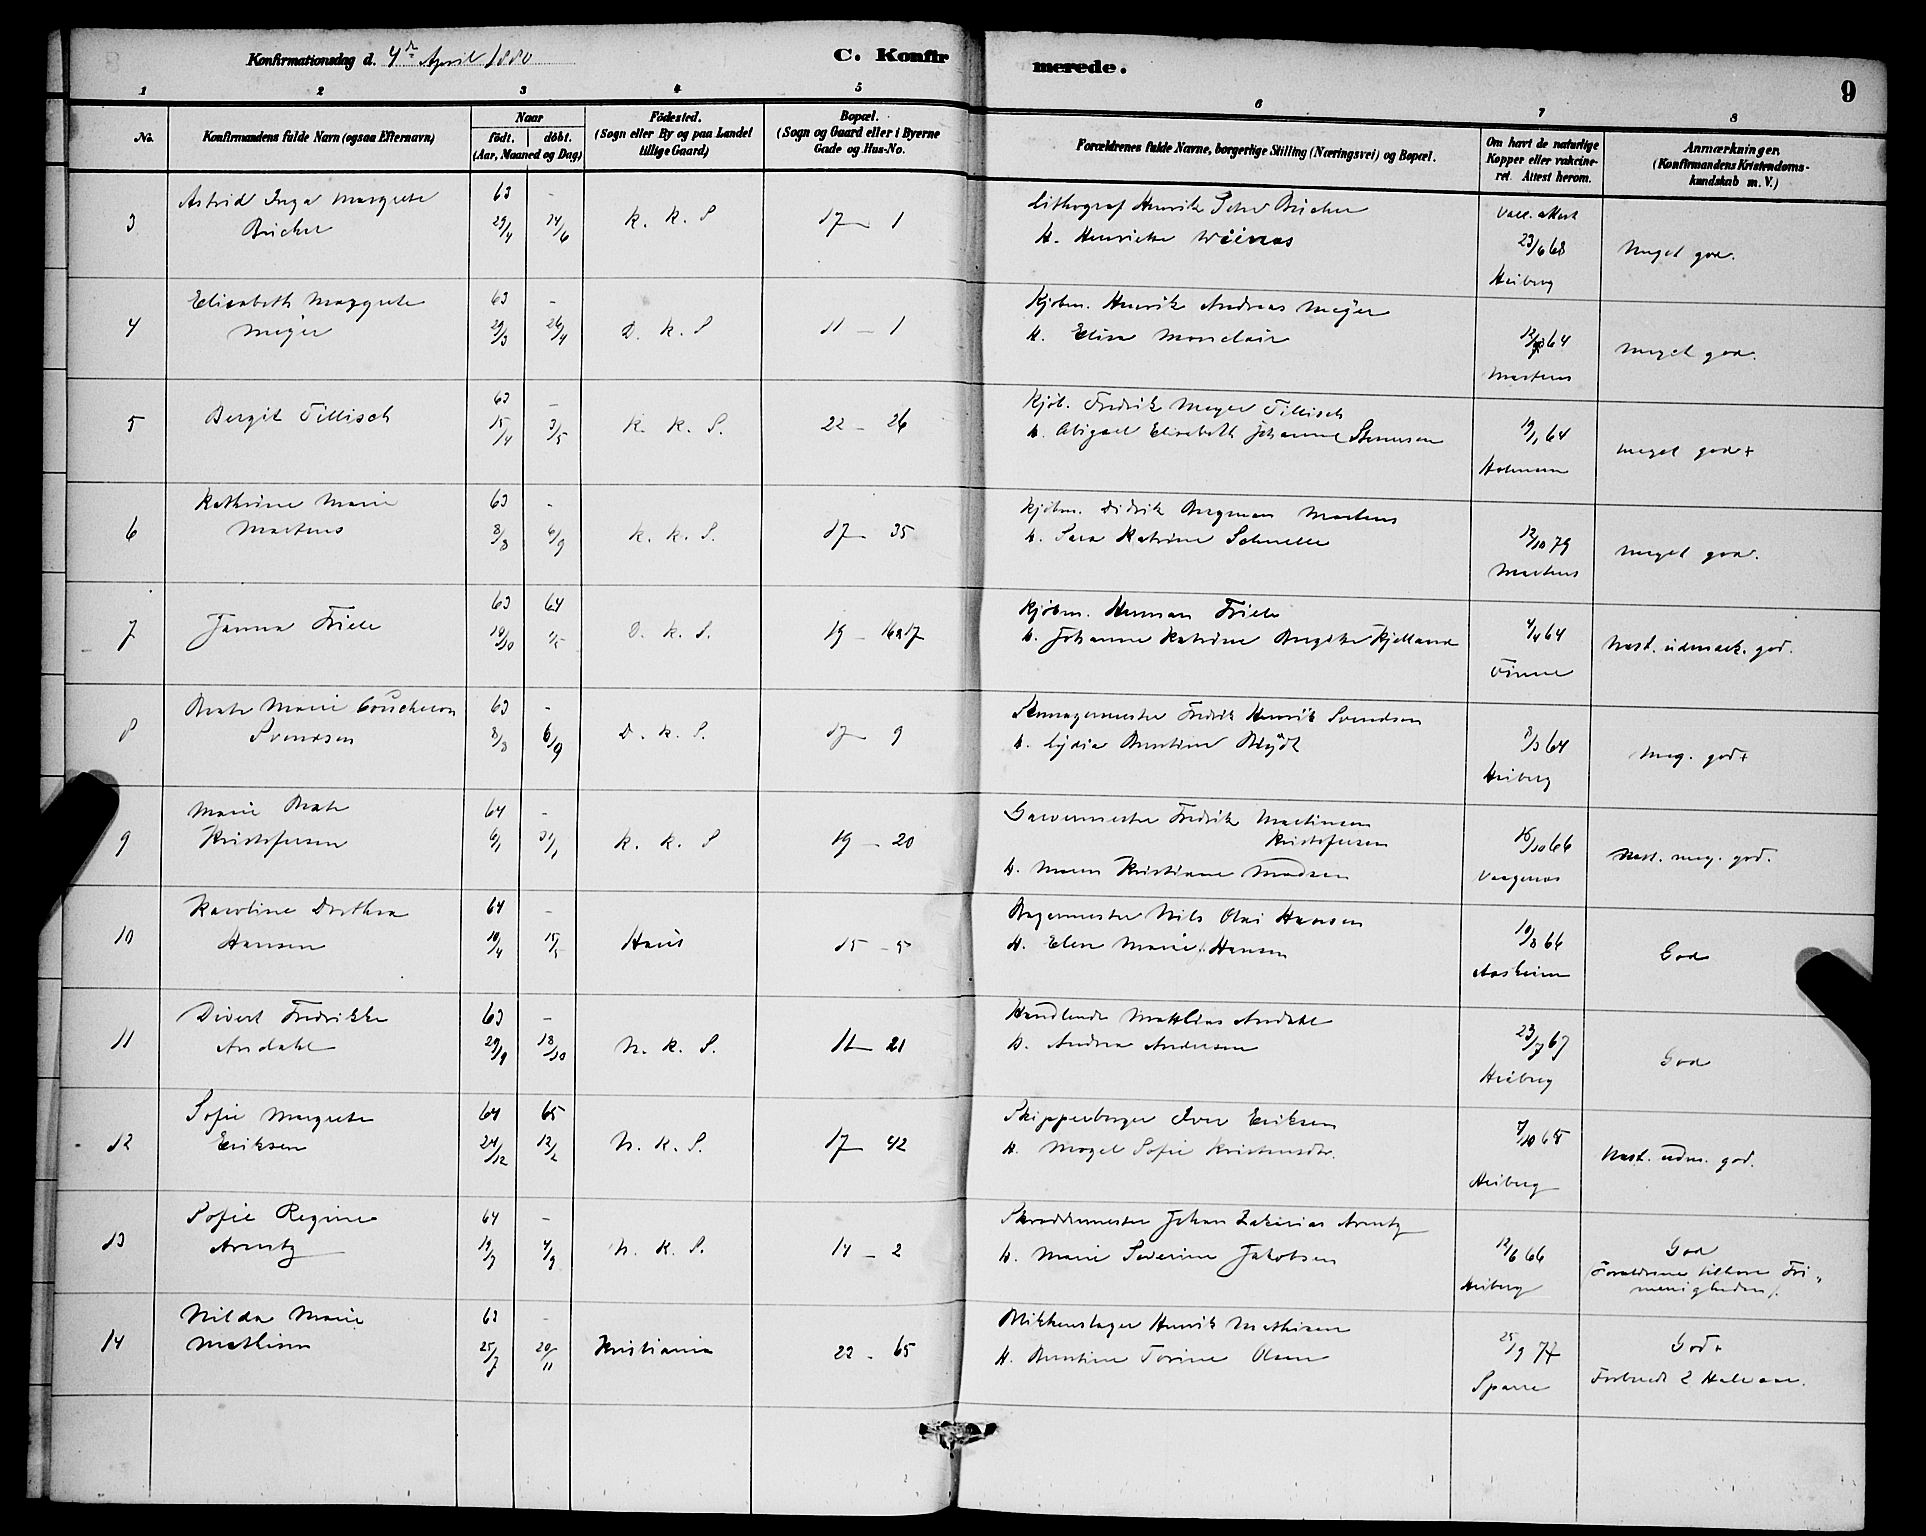 Konfirmationsdag d. 4de April 1880
C. Konfirmerede.
9
1 2 3 4 5 6 7 8
No.
Konfirmandens fulde Navn (ogsaa Efternavn)
Naar
født. døbt.
(Aar, Maaned og Dag)
Fødested.
(Sogn eller By og paa Landet
tillige Gaard)
Bopæl.
(Sogn og Gaard eller i Byerne
Gade og Hus-No.
Forældrenes fulde Navne, borgerlige Stilling (Næringsvei) og Bopæl.
Om havt de naturlige
Kopper eller vakcine-
ret. Attest herom.
Anmærkninger.
(Konfirmandens Kristendoms-
kundskab m. V.)
Astrid Inga Margrete 63 - Lithograf Henrik Bücher Vacc. attest
3 Bücher 29/4 14/6 K. K. S 17 - 1 H. Henriette 23/6 68 Meget god.
Heiberg
Elisabeth Margrete 63 - Kjøbm. Henrik Andreas Meyer
4 Meyer 29/3 26/4 D. K. S 11 - 1 H. Elisa Monclair 64 Meget god.
Martens
63 - Kjøb. Fredrik Meyer Tillisch
5 Bergit Tillisch 15/4 3/5 K. K. S. 22 - 26 H. Abigael Elisabeth Johanne 19/1 64 meget god+
Holmsen
Kathrine Marie 63 - Kjøbm. Didrik Bergman Martens
6 Martens 8/8 6/9 K. K. S. 17 - 35 H. Sara Katrine Schnelle 13/10 79 meget god.
Martens
63 64 Kjøbm. Herman Friele
7 Janna Friele 10/10 D. K. S. 19 - 16a17 H. Johanne Katrine Birgitte Kjelland 4/4 64 Næst. udmærk. god.
Finne
Beate Marie Coucheron 63 - Fredrik Henrik Svendsen
8 Svendsen 8/3 6/9 D. K. S. 17 - 9 H. Lydia Berntine Bløydt 8/3 64 Meg. god+
Heiberg
Marie Beate 64 - Garvermester Fredrik Martinsen
Kristofersen
9 Kristofersen 6/1 31/1 K. K. S 19 - 20 H. Maren Kristiane Madsen 16/10 66 Næst. meg. god.
Vaagenæs
Karoline Dorthea 64 - Bagermester Nils Olai Hansen
10 Hansen 10/4 15/5 Haus 15 - 5 H. Elen Marie Hansen 19/8 66 God
Aasheim
Divert Fredrikke 63 - Handlende Matthias Andahl
11 Andahl 29/9 18/10 N. K. S. 11 - 21 H. Andrea Andersen 23/7 67 God
Heiberg
Sofie Margrete 64 65 Skipperborger Iver Eriksen
12 Eriksen 24/12 12/2 N. K. S. 17 - 42 H. Magel Sofie Kristensdtr. 7/10 65 Næst. udm. god.
Heiberg
Sofie Regine 64 - Skræddermester Johan Zakarias Arentz
13 Arentz 19/7 4/9 N. K. S. 14 - 2 H. Marie Severine Jakobsen 12/6 66 God
Heiberg Forældrene tilhøre Fri-
menigheden.
Hilda Marie 63 - Blikkenslager Henrik Mathisen
14 Mathisen 25/7 20/11 Kristiania 22 - 65 H. Berntine Torine Olsen 25/9 77 God+
Sparre Forberedt 2 Halvaar.